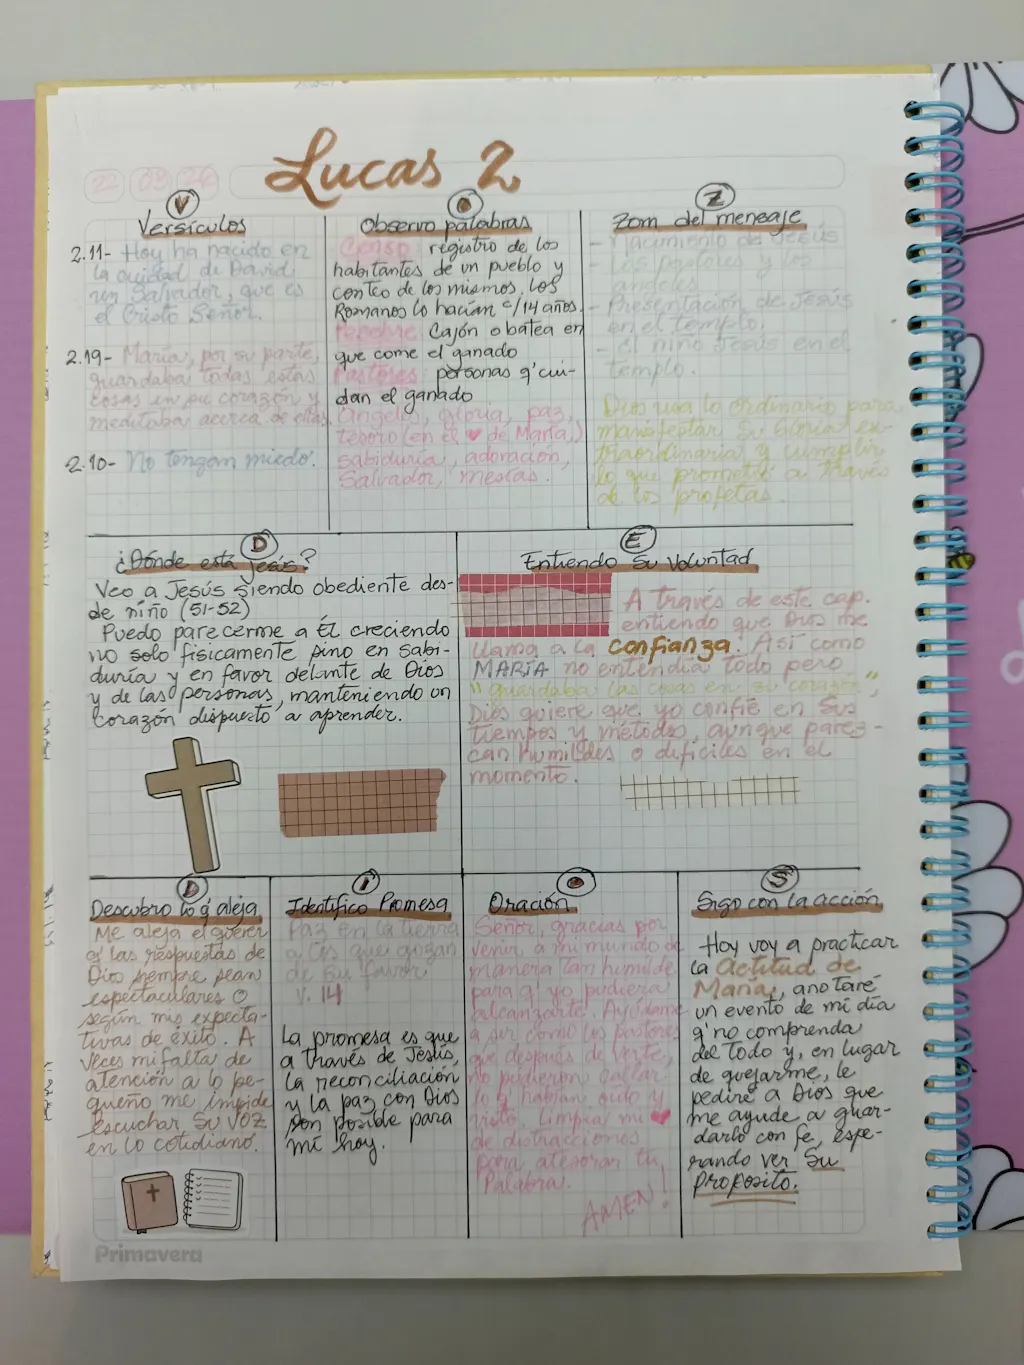 22 03 26
Lucas 2
V
Versículos
2.11- Hoy ha nacido en
la ciudad de David
un Salvador, que es
el Cristo Señor.
2.19- María, por su parte,
guardaba todas estas
cosas en su corazón y
meditaba acerca de ellas
2.10- No tengan miedo.
O
Observo palabras
Censo: registro de los
habitantes de un pueblo y
conteo de los mismos. Los
Romanos lo hacían c/14 años.
Pesebre: Cajón o batea en
que come el ganado
Pastores: personas q' cui-
dan el ganado
Angeles, gloria, paz,
tesoro (en el ♥ de María,)
sabiduría, adoración,
Salvador, mesías.
Z
Zom del mensaje
- Nacimiento de Jesús
- Los pastores y los
angeles
- Presentación de Jesús
en el templo.
- El niño Jesús en el
templo.
Dios usa lo ordinario para
manifestar Su Gloria ex-
traordinaria y cumplir
lo que prometió a través
de los profetas.
D
¿Dónde está Jesús?
Veo a Jesús siendo obediente des-
de niño (51-52)
Puedo parecerme a Él creciendo
no solo físicamente sino en sabi-
duría y en favor delante de Dios
y de las personas, manteniendo un
corazón dispuesto a aprender.
E
Entiendo Su Voluntad
A través de este cap.
entiendo que Dios me
llama a la confianza. Así como
MARÍA no entendía todo pero
"guardaba las cosas en su corazón",
Dios quiere que yo confíe en Sus
tiempos y métodos, aunque parez-
can humildes o difíciles en el
momento.
D
Descubro lo q' aleja
Me aleja el querer
q' las respuestas de
Dios siempre sean
espectaculares o
según mis expecta-
tivas de éxito. A
veces mi falta de
atención a lo pe-
queño me impide
escuchar Su voz
en lo cotidiano.
I
Identifico Promesa
Paz en la tierra
a los que gozan
de su favor
v. 14
La promesa es que
a través de Jesús,
la reconciliación
y la paz con Dios
son posible para
mí hoy.
O
Oración
Señor, gracias por
venir a mi mundo de
manera tan humilde
para q' yo pudiera
alcanzarte. Ayúdame
a ser como los pastores
que después de verte,
no pudieron callar
lo q' habían oído y
visto. Limpia mi ♥
de distracciones
para atesorar tu
Palabra.
AMEN!
S
Sigo con la acción
Hoy voy a practicar
la actitud de
María, anotaré
un evento de mi día
q' no comprenda
del todo y, en lugar
de quejarme, le
pediré a Dios que
me ayude a guar-
darlo con fe, espe-
rando ver Su
proposito.
Primavera